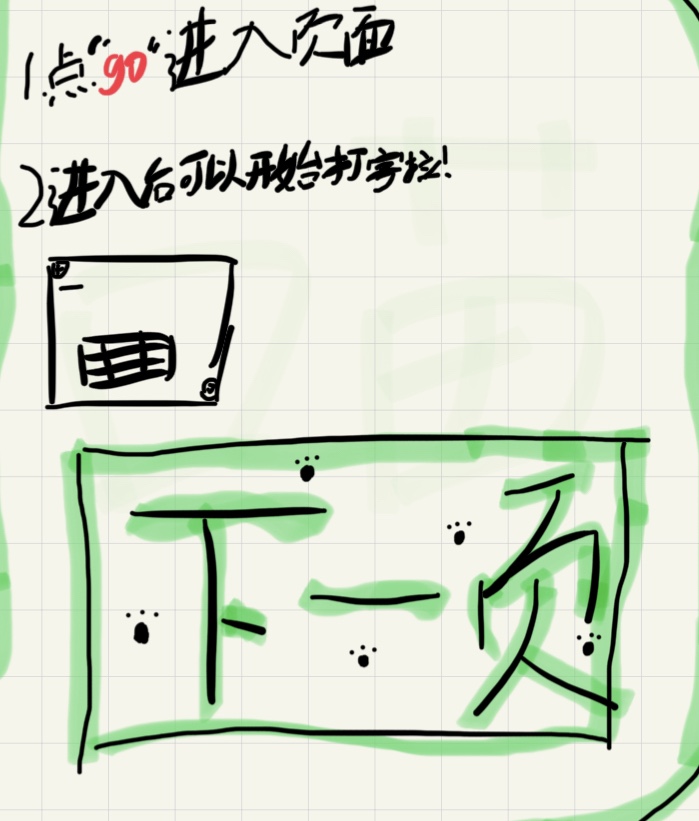 1点“go“进入页面
2进入后可以开始打字拉!
下一页